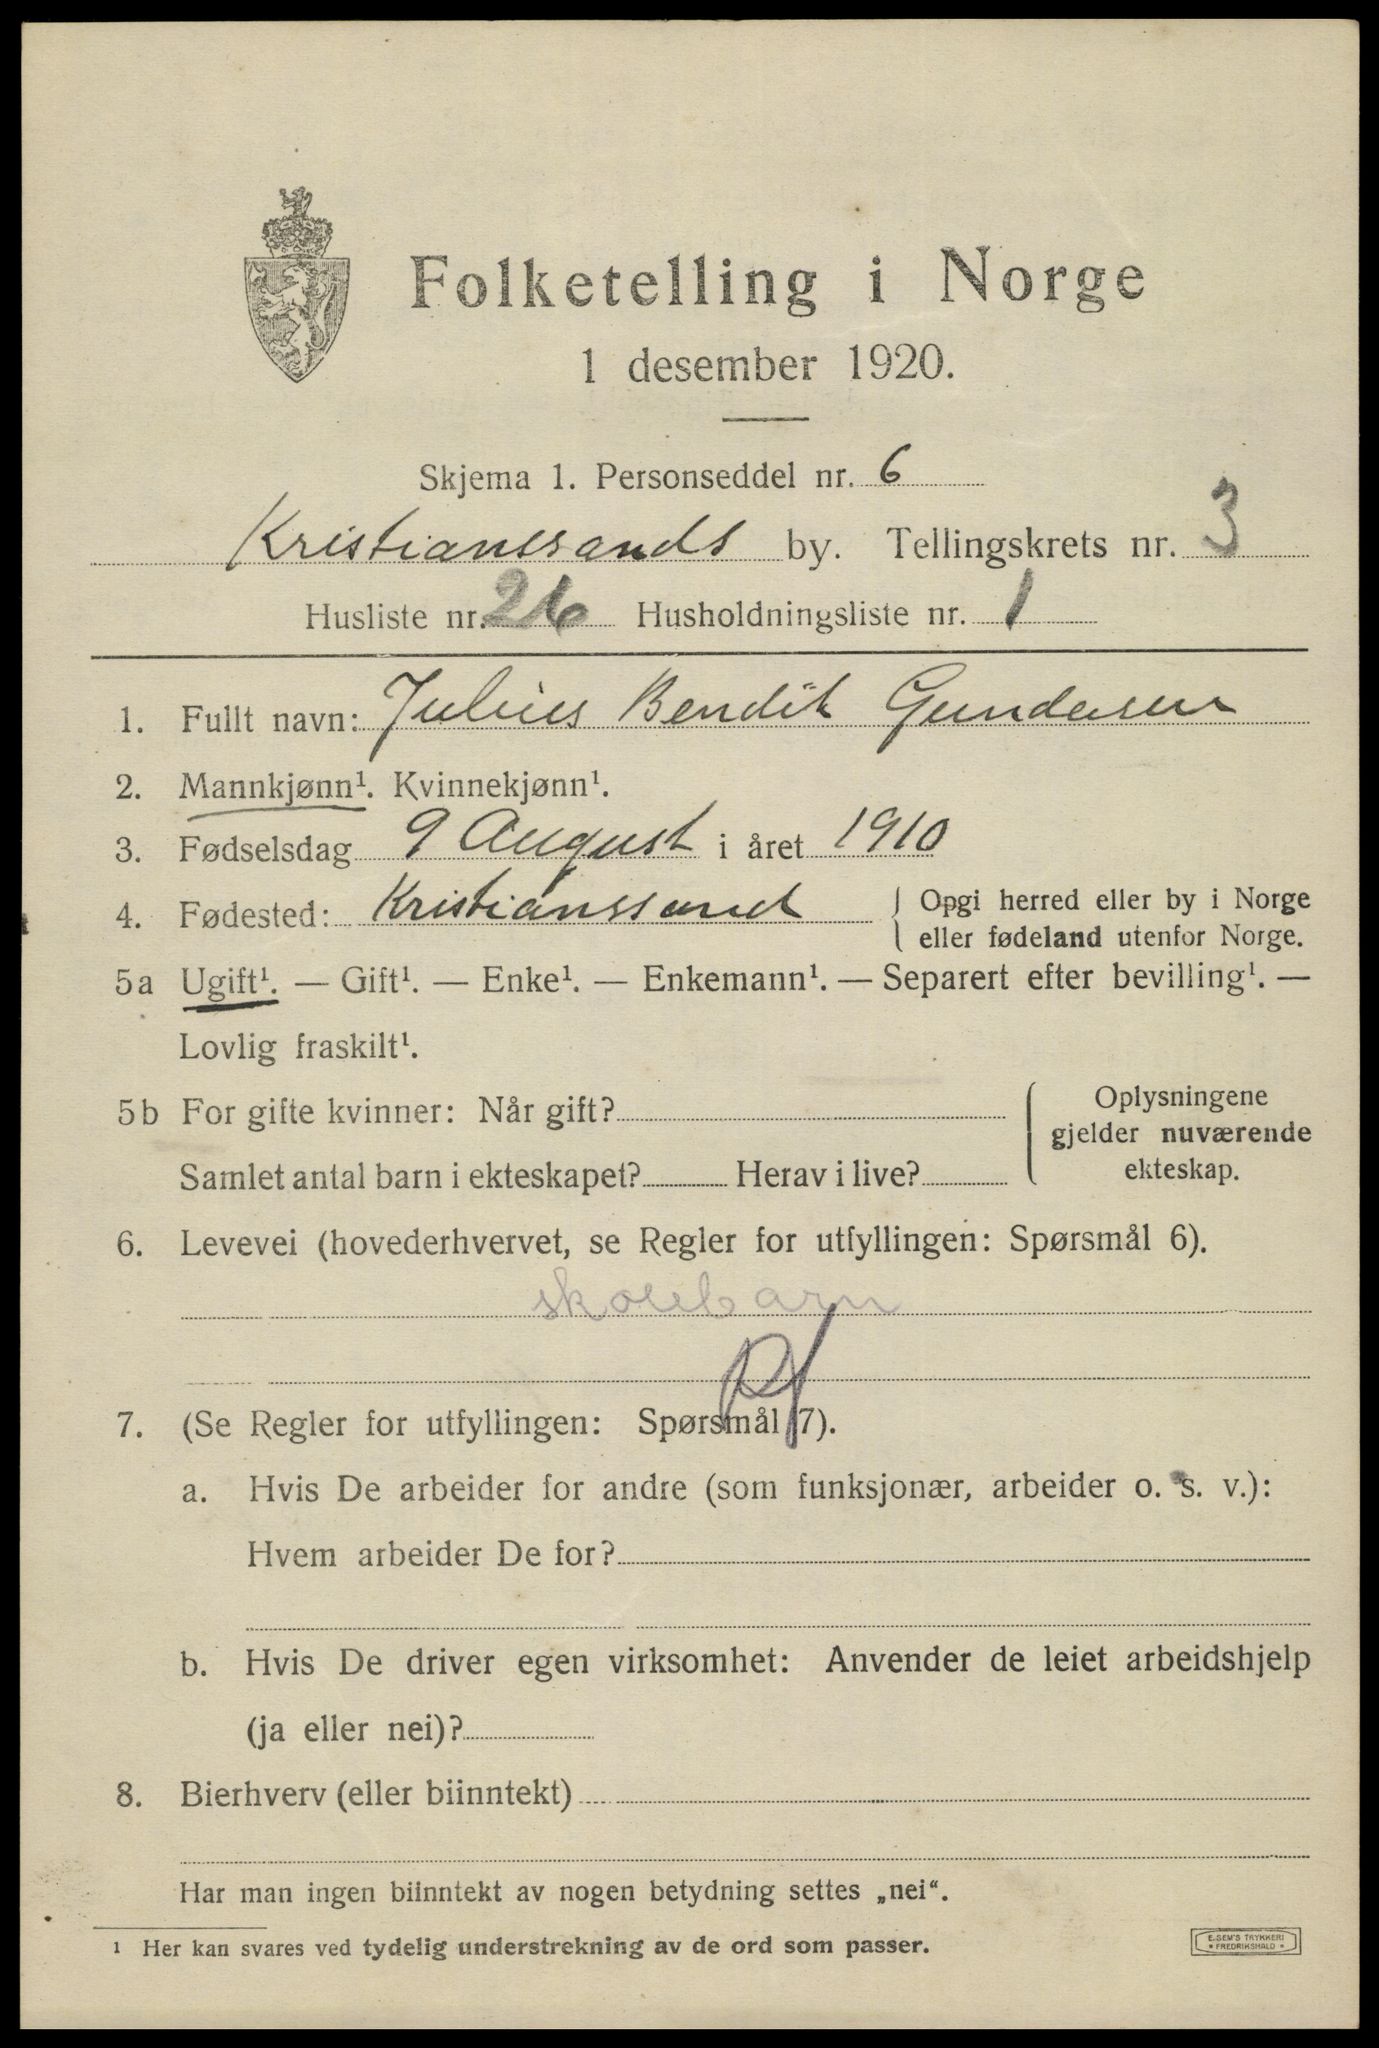 Folketelling i Norge
1 desember 1920.
Skjema 1. Personseddel nr. 6
Kristianssands by. Tellingskrets nr. 3
Husliste nr. 26 Husholdningsliste nr. 1
1. Fullt navn: Julius Bendik Gundersen
2. Mannkjønn¹. Kvinnekjønn¹.
3. Fødselsdag 9 August i året 1910
4. Fødested: Kristianssand { Opgi herred eller by i Norge
eller fødeland utenfor Norge.
5a Ugift¹. — Gift¹. — Enke¹. — Enkemann¹. — Separert efter bevilling¹. —
Lovlig fraskilt¹.
5b For gifte kvinner: Når gift? { Oplysningene
gjelder nuværende
Samlet antal barn i ekteskapet? Herav i live? ekteskap.
6. Levevei (hovederhvervet, se Regler for utfyllingen: Spørsmål 6).
skolebarn
7. (Se Regler for utfyllingen: Spørsmål 7).
a. Hvis De arbeider for andre (som funksjonær, arbeider o. s. v.):
Hvem arbeider De for?
b. Hvis De driver egen virksomhet: Anvender de leiet arbeidshjelp
(ja eller nei)?
8. Bierhverv (eller biinntekt)
Har man ingen biinntekt av nogen betydning settes „nei“.
¹ Her kan svares ved tydelig understrekning av de ord som passer.
E. SEM'S TRYKKERI
* FREDRIKSHALD *